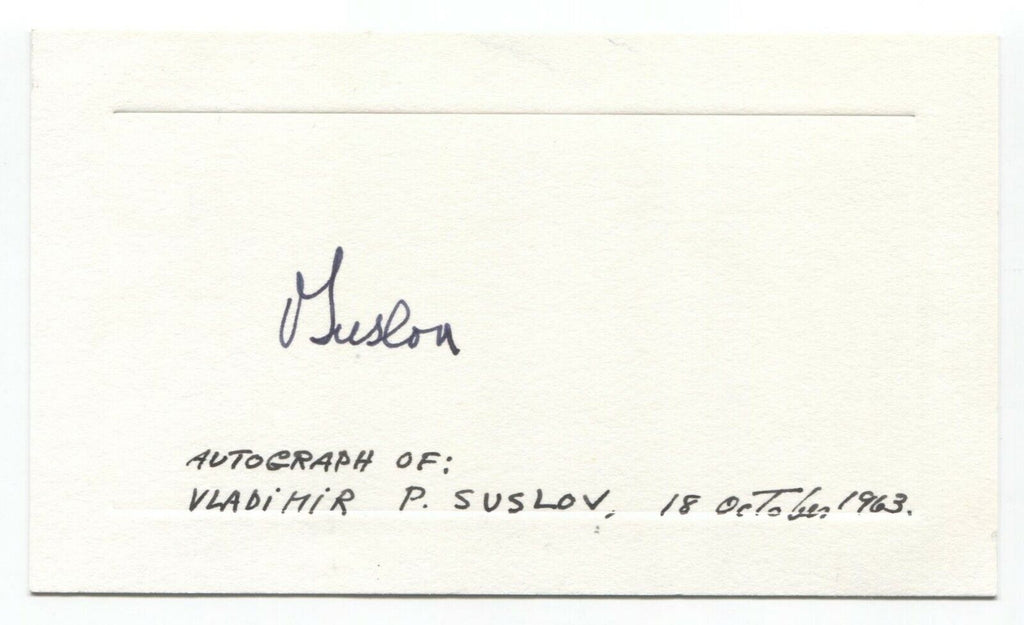 VSuslov
AUTOGRAPH OF:
VLADIMIR P. SUSLOV, 18 October 1963.